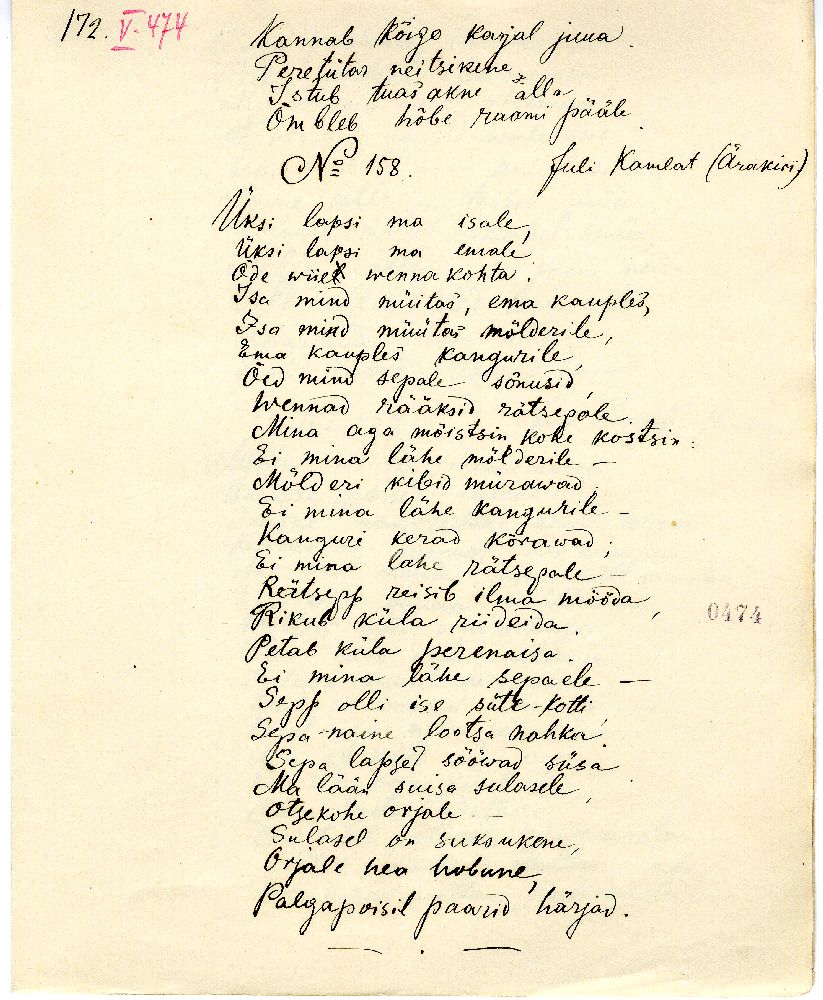 172. V. 474
Kannab kõige karjal juua.
Peretütar neitsikene,
Istub tuas akne alla
Õmbleb hõbe raami pääle.
No 158. Juli Kamlat (Ärakiri)
Üksi lapsi ma isale,
Üksi lapsi ma emale
Õde wiiel wenna kohta.
Isa mind müitas, ema kauples,
Isa mind müütas mölderile,
Ema kauples kangurile,
Õed mind sepale sõnusid,
Wennad rääksid rätsepale.
Mina aga mõistsin kohe kostsin:
Ei mina lähe mölderile —
Mölderi kibid mürawad.
Ei mina lähe kangurile —
Kanguri kerad kõrawad;
Ei mina lahe rätsepale —
Rätsepp reisib ilma mööda,
Rikub küla riideida.
Petab küla perenaisa.
Ei mina lähe sepaele —
Sepp olli ise süte-kotti,
Sepa-naine lootsa nahka.
Sepa lapsed sööwad süsa
Ma lään suisa sulasele,
Otsekohe orjale —
Sulasel on suksukene,
Orjale hea hobune,
Palgapoisil paarid härjad.
0474